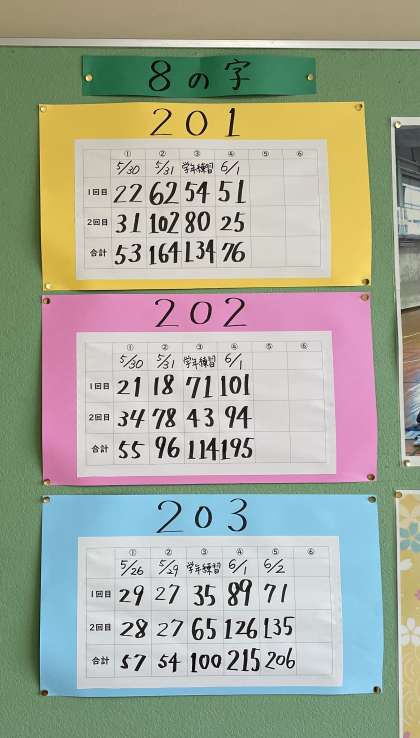 8の字
201
① ② ③ ④ ⑤ ⑥
5/30 5/31 学年練習 6/1
1回目 22 62 54 51
2回目 31 102 80 25
合計 53 164 134 76
202
① ② ③ ④ ⑤ ⑥
5/30 5/31 学年練習 6/1
1回目 21 18 71 101
2回目 34 78 43 94
合計 55 96 114 195
203
① ② ③ ④ ⑤ ⑥
5/26 5/29 学年練習 6/1 6/2
1回目 29 27 35 89 71
2回目 28 27 65 126 135
合計 57 54 100 215 206